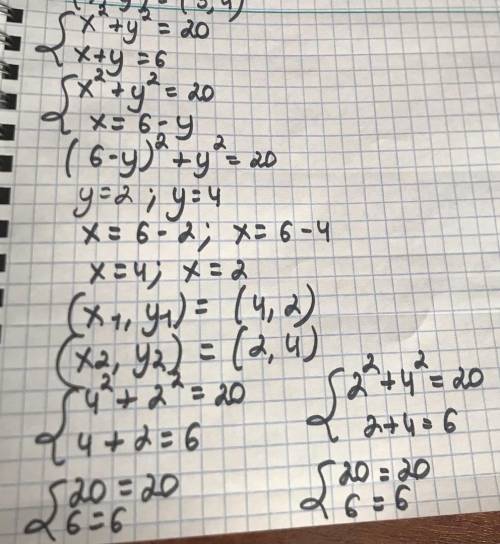 {x²+y²=20
x+y=6
{x²+y²=20
x=6-y
(6-y)²+y²=20
y=2; y=4
x=6-2; x=6-4
x=4; x=2
(x1, y1) = (4, 2)
(x2, y2) = (2, 4)
{4²+2²=20
4+2=6
{2²+4²=20
2+4=6
{20=20
6=6
{20=20
6=6